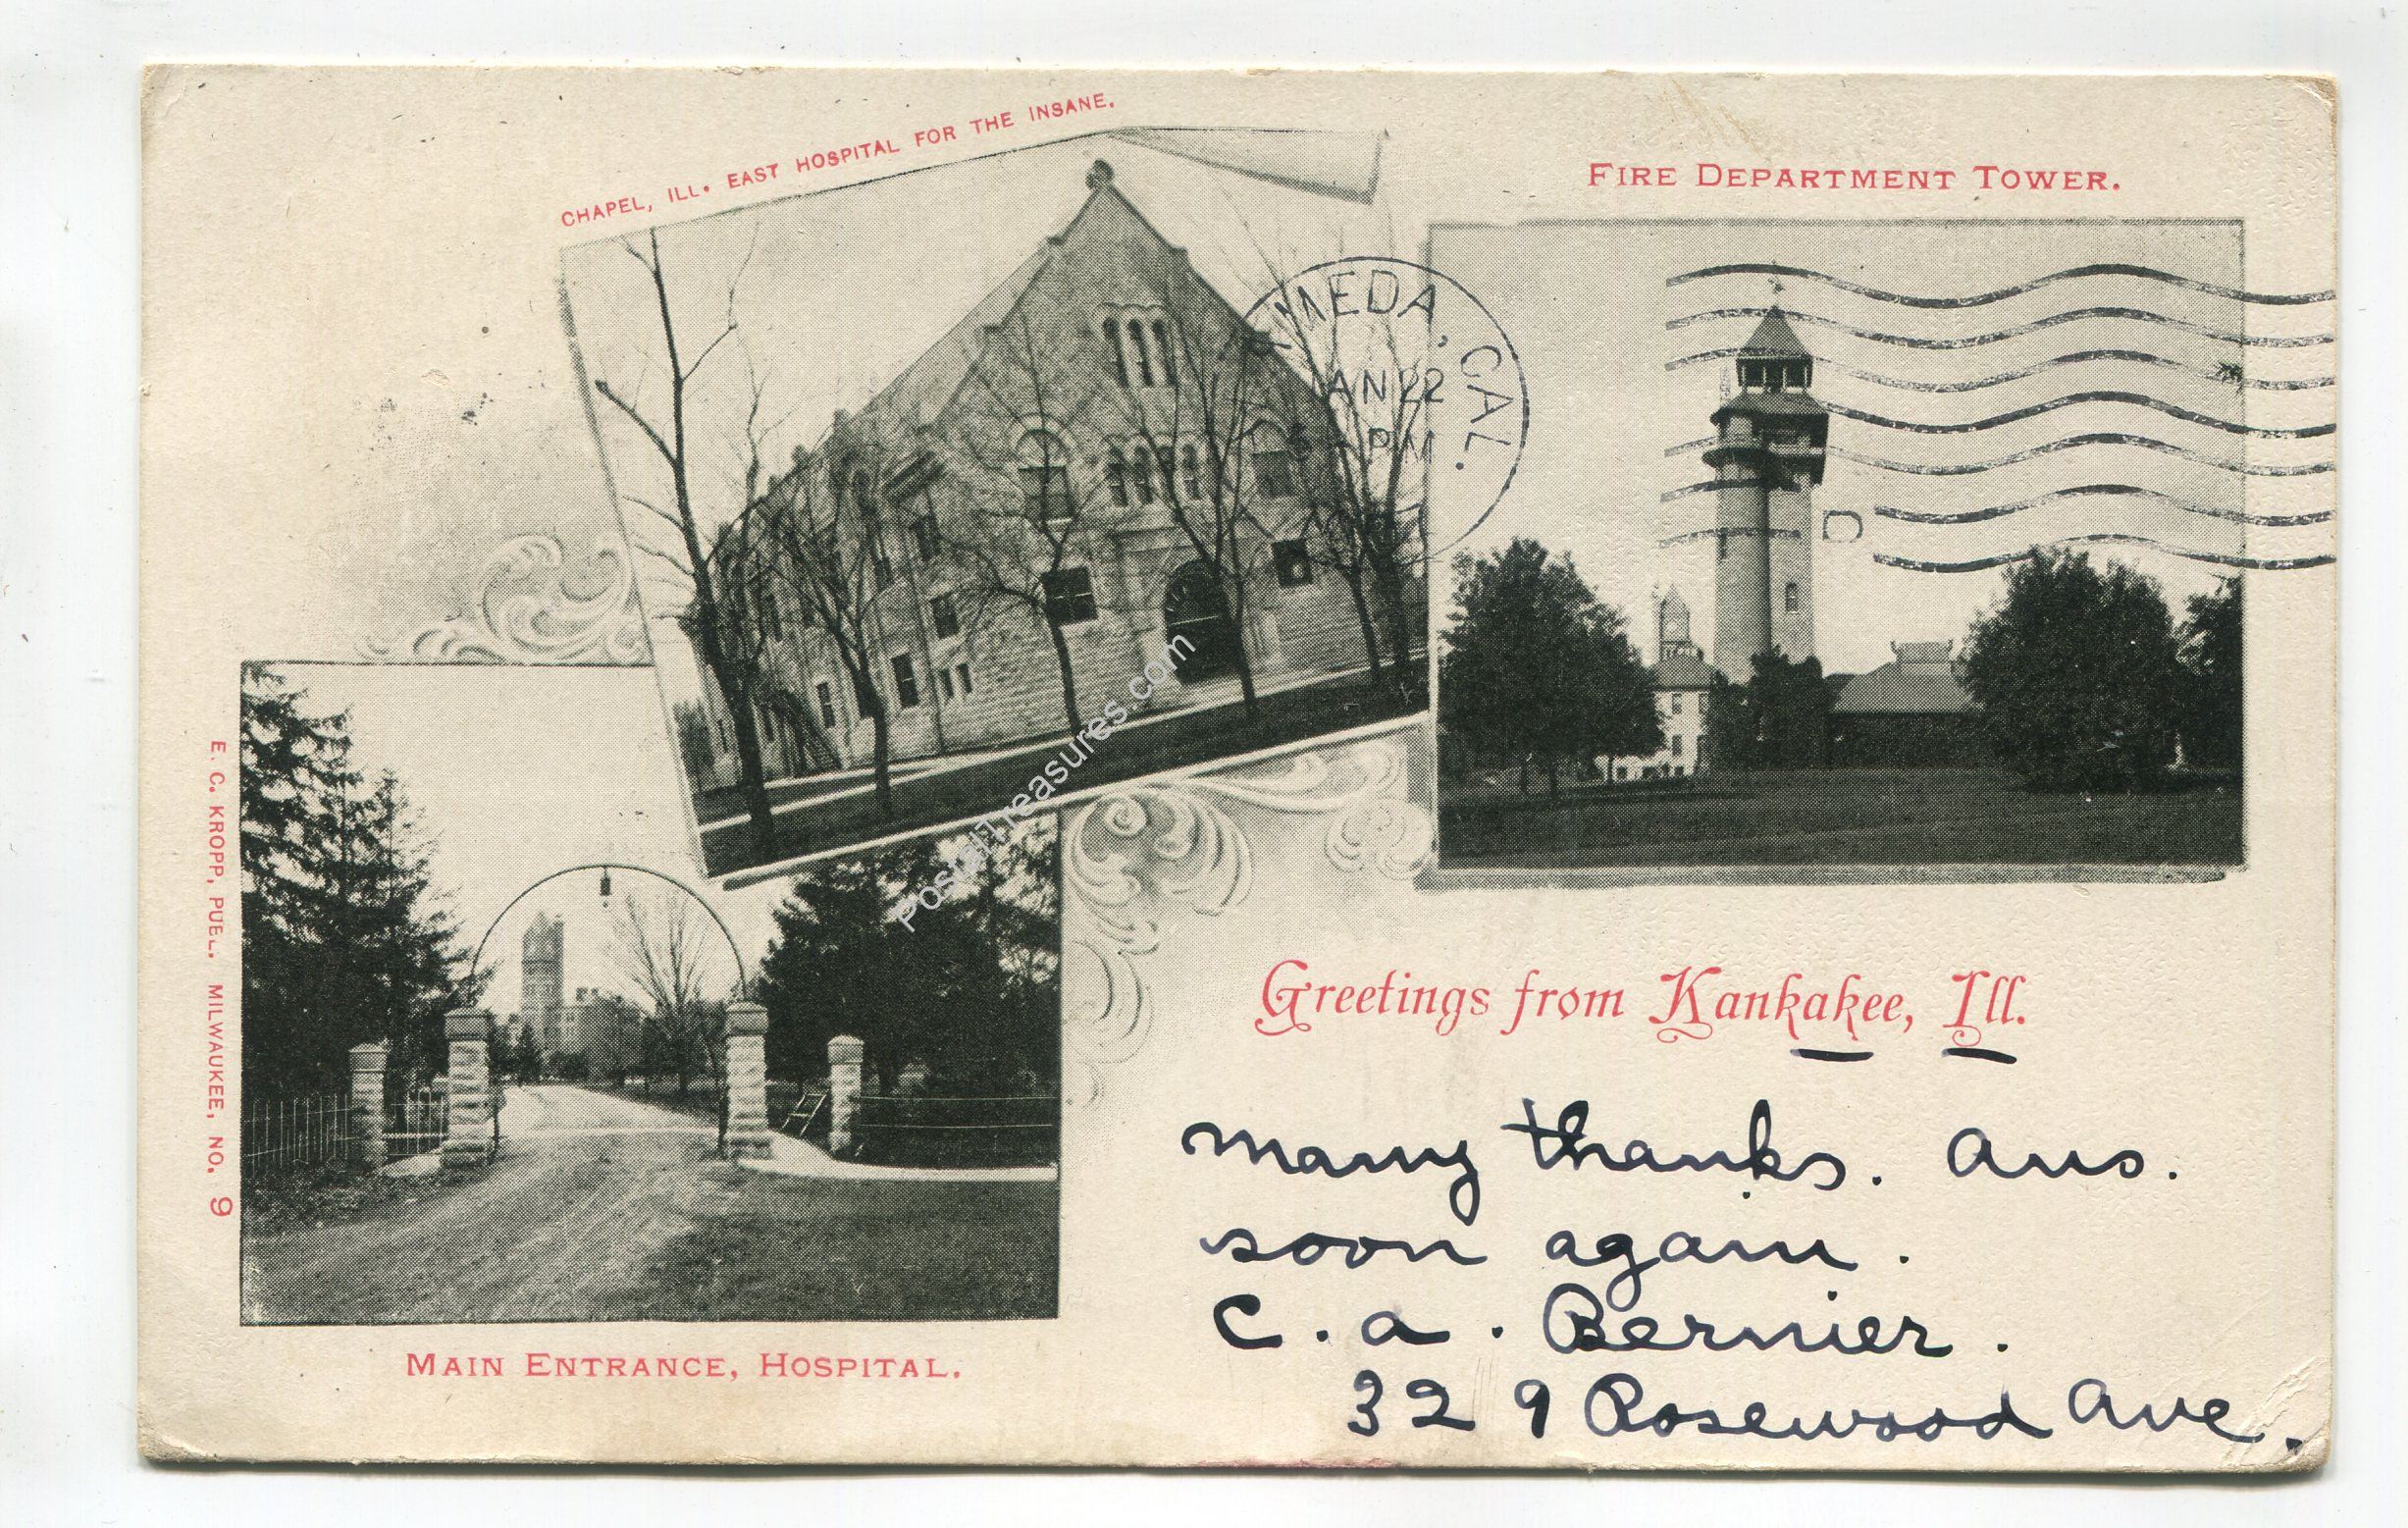 CHAPEL, ILL. EAST HOSPITAL FOR THE INSANE.
FIRE DEPARTMENT TOWER.
MEDA, CAL.
JAN 22
PM
PostalTreasures.com
E. C. KROPP, PUBL. MILWAUKEE, NO. 9
Greetings from Kankakee, Ill.
many thanks. Ans.
soon again.
C. A. Bernier.
329 Rosewood Ave.
MAIN ENTRANCE, HOSPITAL.